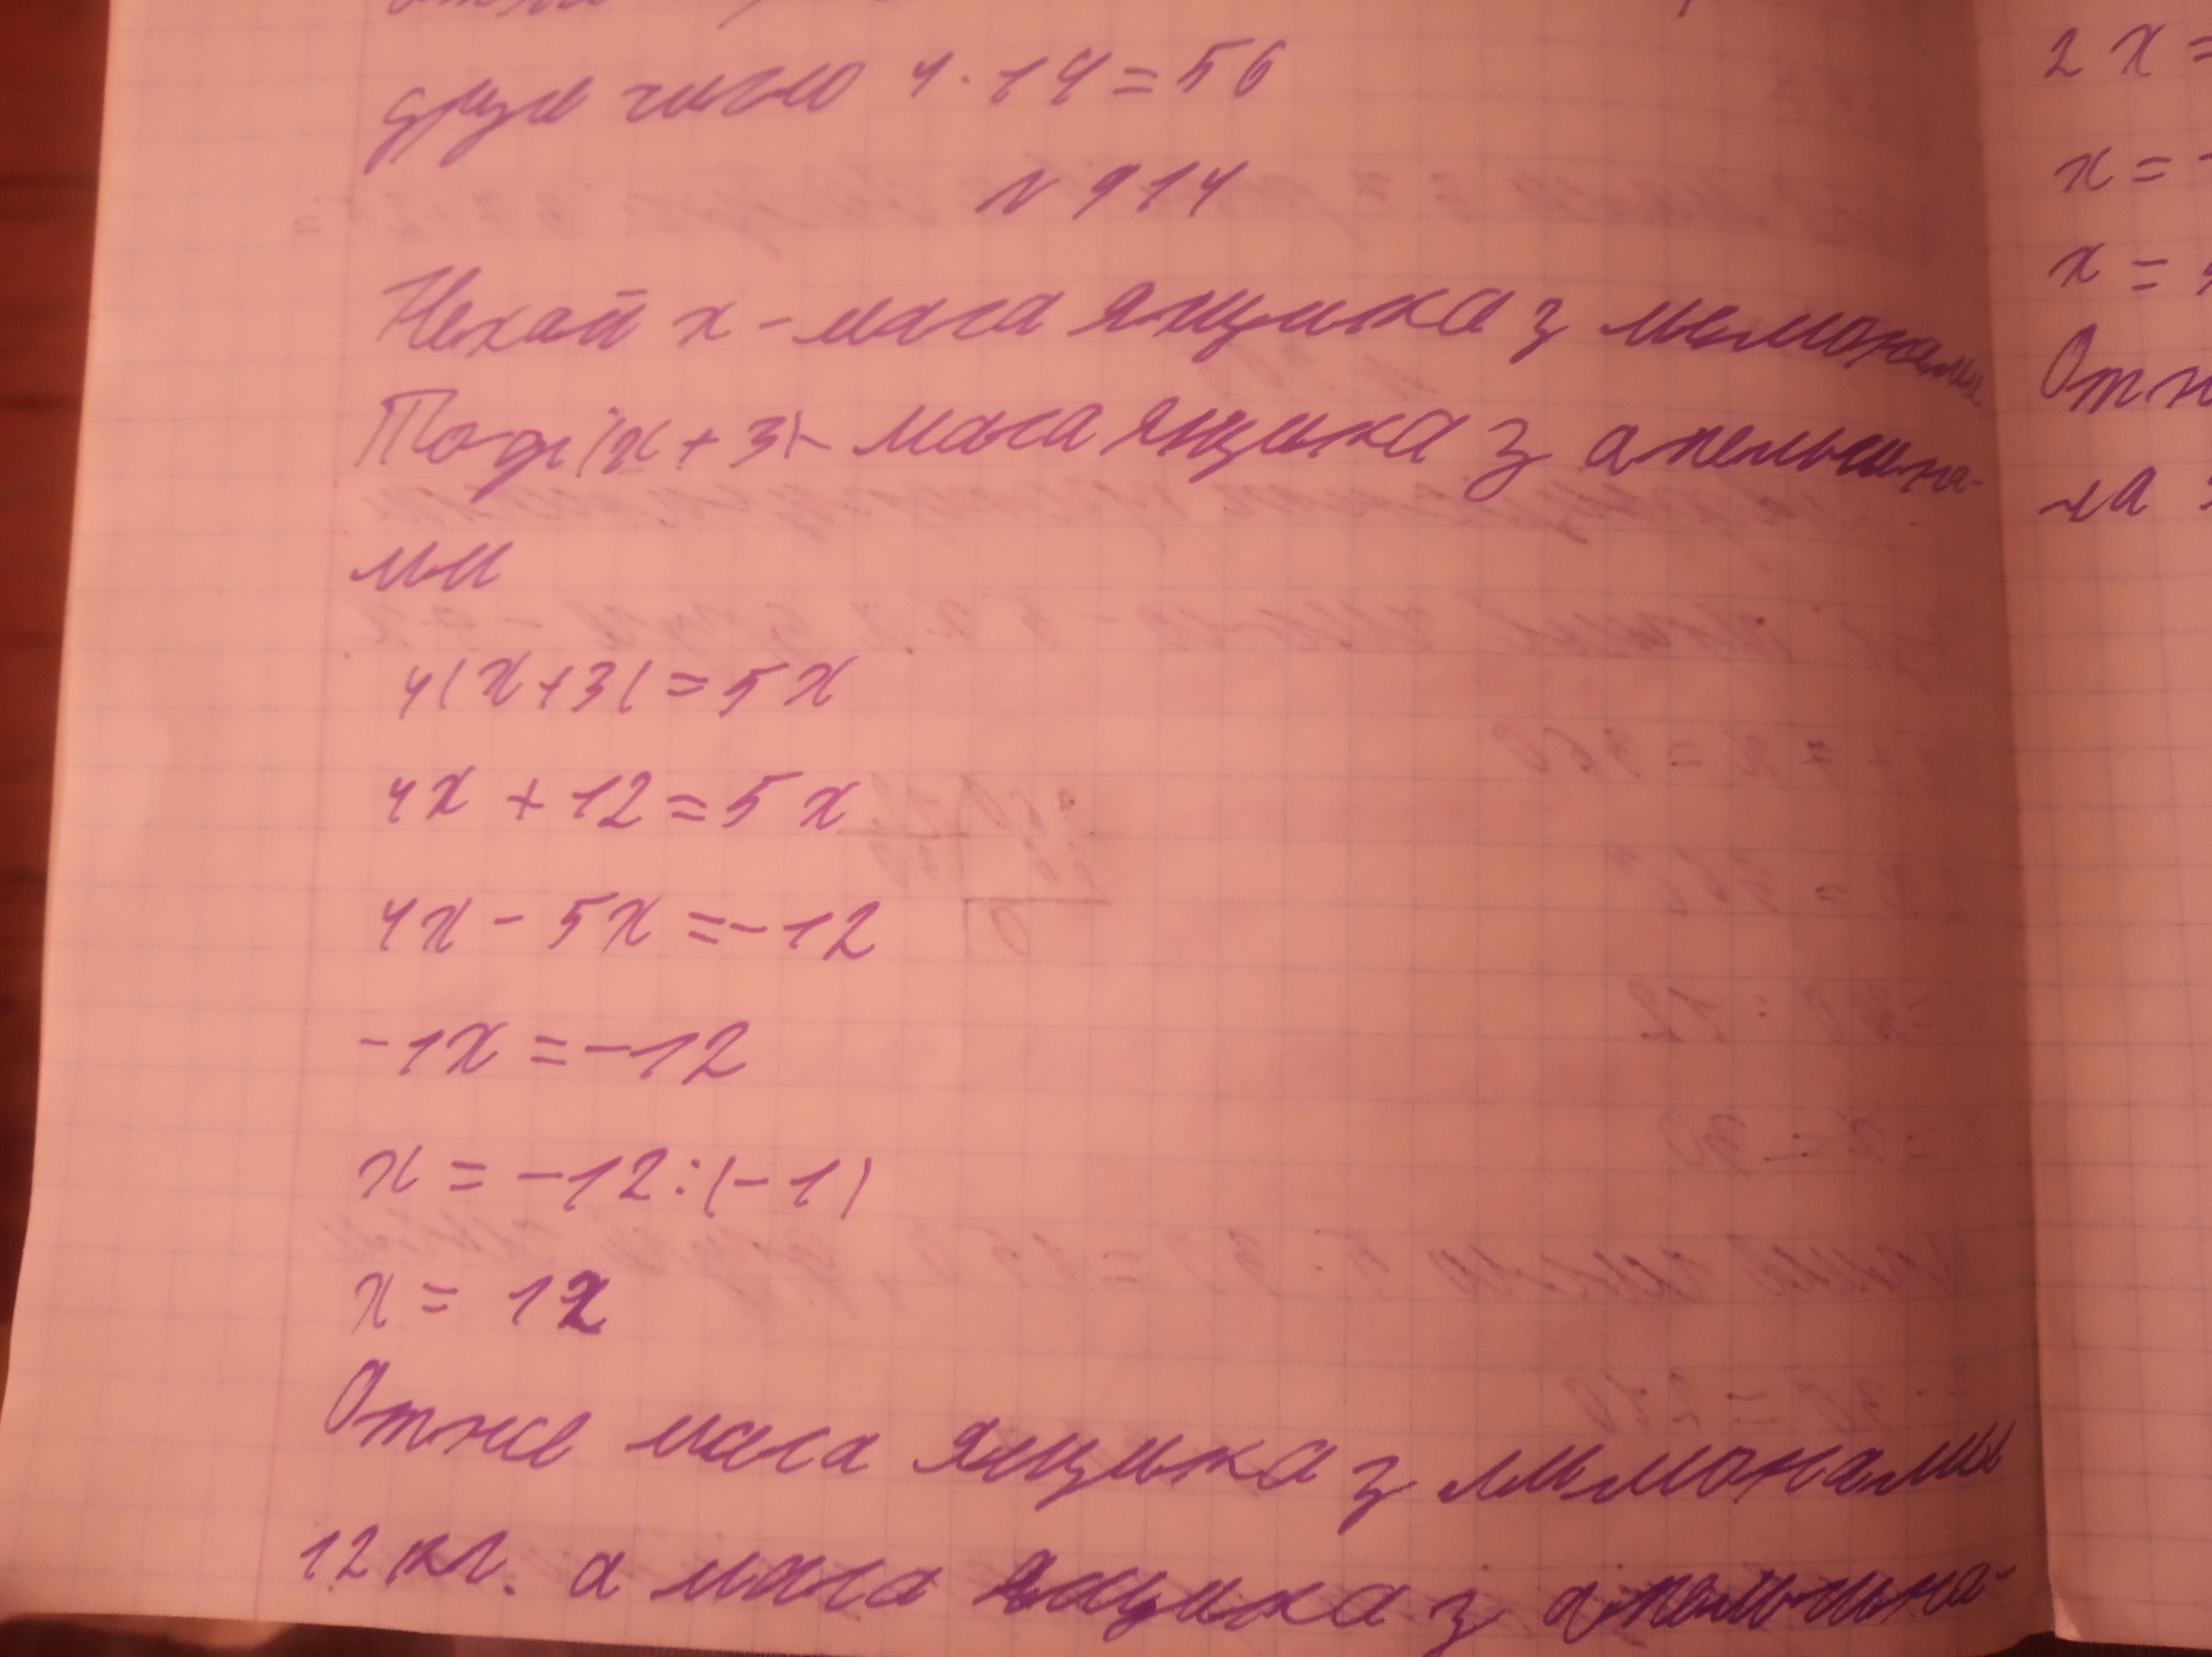 друге число 4·14=56
N 914
Нехай х - маса ящика з лимонами
Тоді (х+3) - маса ящика з апельсина-
ми
4(х+3)=5х
4х+12=5х
4х-5х=-12
-1х=-12
х=-12:(-1)
х=12
Отже маса ящика з лимонами
12 кг. а маса ящика з апельсина-
2х=
х=
х=
Отж
ла